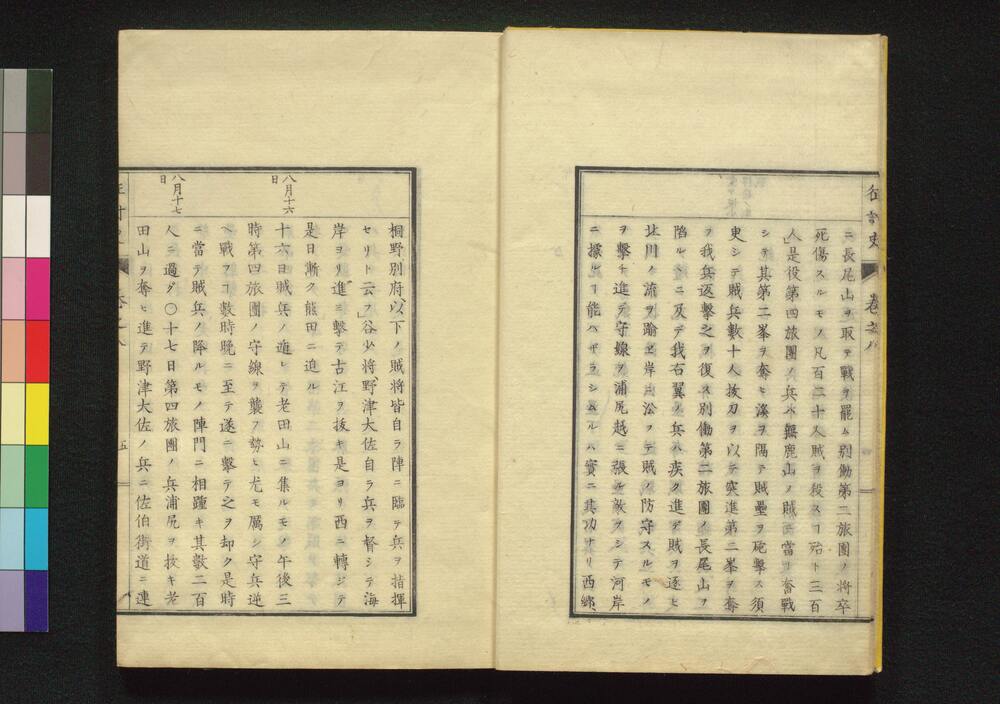 征討史 卷之八
ニ長尾山ヲ取テ戰ヲ罷ム別働第二旅團ノ將卒
死傷スルモノ凡百二十人賊ヲ殺スコ殆ト三百
人」是役第四旅團ノ兵ハ無鹿山ノ賊ニ當リ奮戰
シテ其第二峯ヲ奪ヒ溪ヲ隔テ賊壘ヲ砲擊ス須
臾シテ賊兵數十人拔刀ヲ以テ突進第二峯ヲ奪
フ我兵返擊之ヲ復ス別働第二旅團ノ長尾山ヲ
陷ル丶ニ及テ我右翼ノ兵ハ疾ク進テ賊ヲ逐ヒ
北川ノ流ヲ踰エ岸ニ沿フテ賊ノ防守スルモノ
ヲ擊チ進テ守線ヲ浦尻越ニ張チ敵ヲシテ河岸
ニ據ルヿ能ハザラシムルハ實ニ其功ナリ西鄕
桐野別府以下ノ賊將皆自ラ陣ニ臨テ兵ヲ指揮
セリト云フ」谷少將野津大佐自ラ兵ヲ督シテ海
岸ヨリ進ミ擊テ古江ヲ拔キ是ヨリ西ニ轉ジテ
是日漸ク熊田ニ迫ル
八月十六日
十六日賊兵ノ遁レテ老田山ニ集ルモノ午後三
時第四旅團ノ守線ヲ襲フ勢ヒ尤モ厲シ守兵逆
ヘ戰フコ數時晚ニ至テ遂ニ擊テ之ヲ却ク是時
ニ當テ賊兵ノ降ルモノ陣門ニ相踵キ其數二百
八月十七日
人ニ過グ〇十七日第四旅團ノ兵浦尻ヲ拔キ老
田山ヲ奪ヒ進テ野津大佐ノ兵ニ佐伯街道ニ連
五